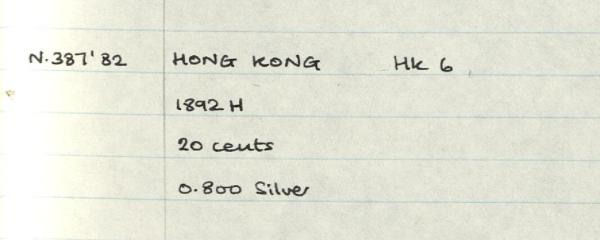 N.387'82 HONG KONG HK 6
1892 H
20 cents
0.800 Silver